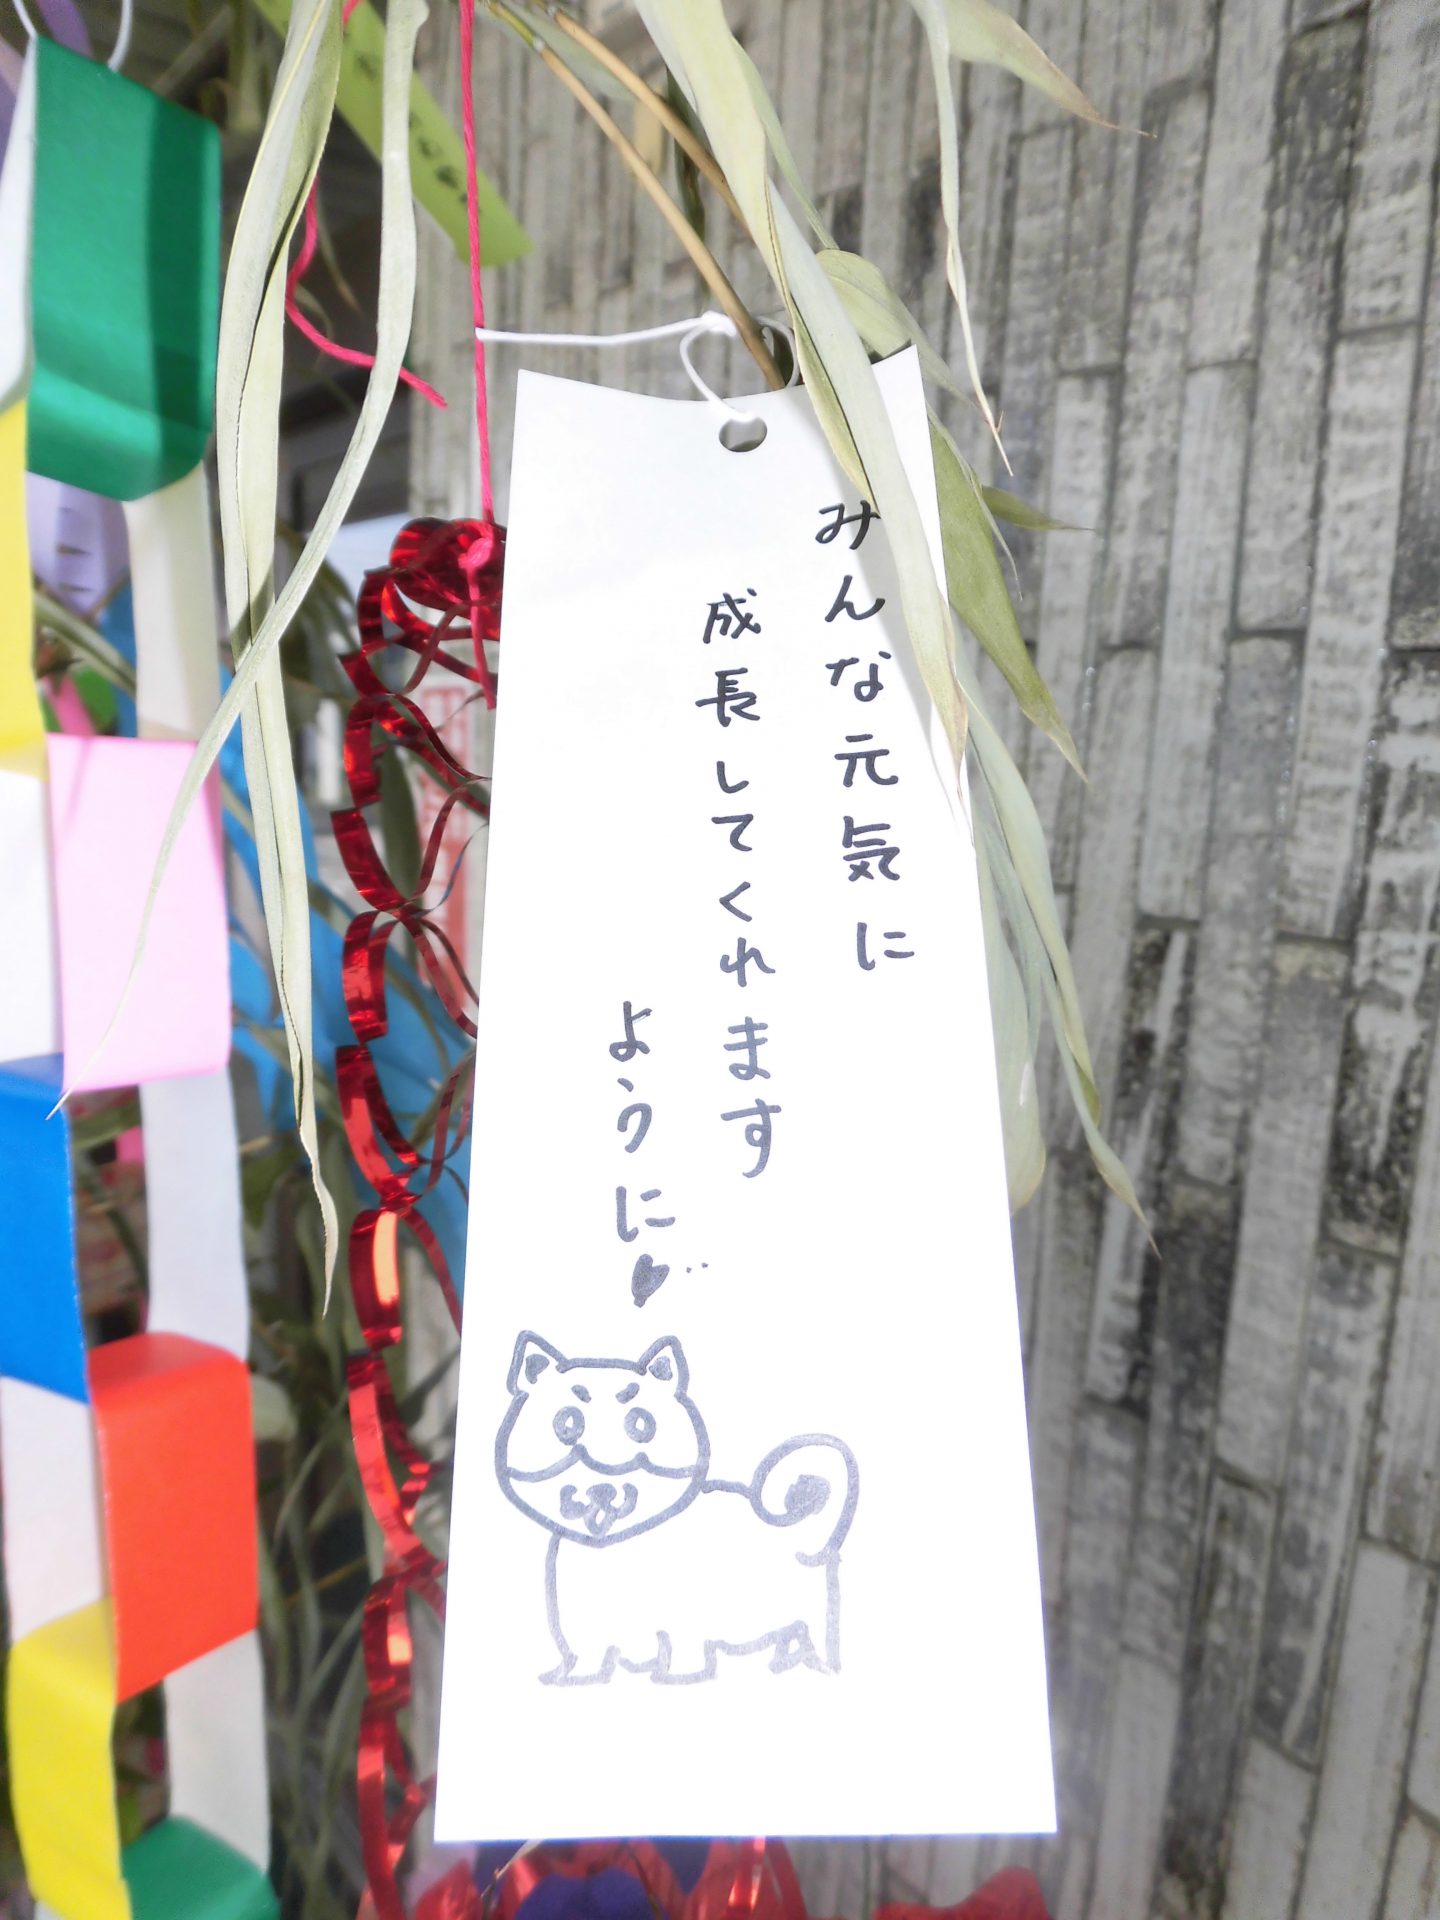 みんな元気に
成長してくれます
ように